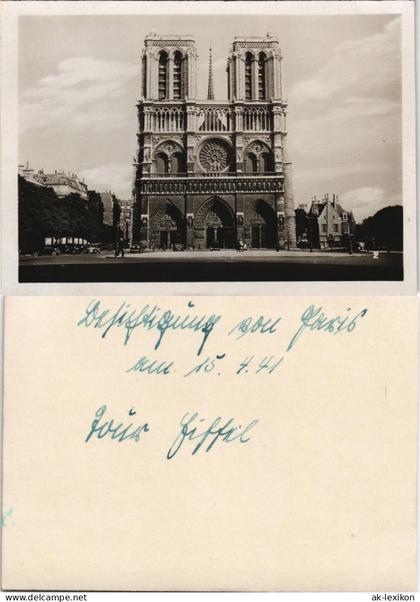 Besichtigung von Paris
am 15. 4. 41
Tour Eiffel
ak-lexikon